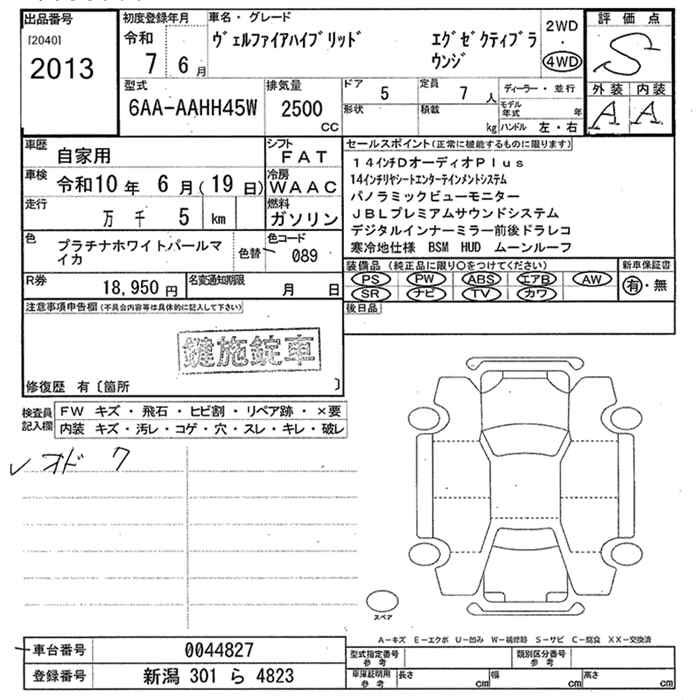 出品番号
[2040]
2013
初度登録年月
令和
7 6月
車名・グレード
ヴェルファイアハイブリッド エグゼクティブラウンジ
2WD
・
4WD
評価点
S
外装 内装
A A
型式
6AA-AAHH45W
排気量
2500
cc
ドア
5
定員
7人
形状
積載
kg
ディーラー・並行
モデル年式 年
ハンドル 左・右
車歴
自家用
シフト
FAT
車検
令和10年 6月(19日)
冷房
WAAC
走行
万 千 5 km
燃料
ガソリン
色
プラチナホワイトパールマイカ
色替
色コード
089
R券
18,950円
名変通知期限
月 日
セールスポイント(正常に機能するものに限ります)
14インチDオーディオPlus
14インチリヤシートエンターテインメントシステム
パノラミックビューモニター
JBLプレミアムサウンドシステム
デジタルインナーミラー前後ドラレコ
寒冷地仕様 BSM HUD ムーンルーフ
装備品(純正品に限り○をつけてください)
PS PW ABS エアB AW
SR ナビ TV カワ
新車保証書
有・無
後日品
注意事項申告欄(不具合内容等は具体的に記入して下さい)
鍵施錠車
修復歴 有〔箇所 〕
検査員記入欄
FW キズ・飛石・ヒビ割・リペア跡・×要
内装 キズ・汚レ・コゲ・穴・スレ・キレ・破レ
レオド ク
スペア
A-キズ E-エクボ U-凹み W-補修跡 S-サビ C-腐食 XX-交換済
車台番号
0044827
登録番号
新潟 301 ら 4823
型式指定番号
参考
類別区分番号
参考
車庫証明用
参考
長さ cm
幅 cm
高さ cm